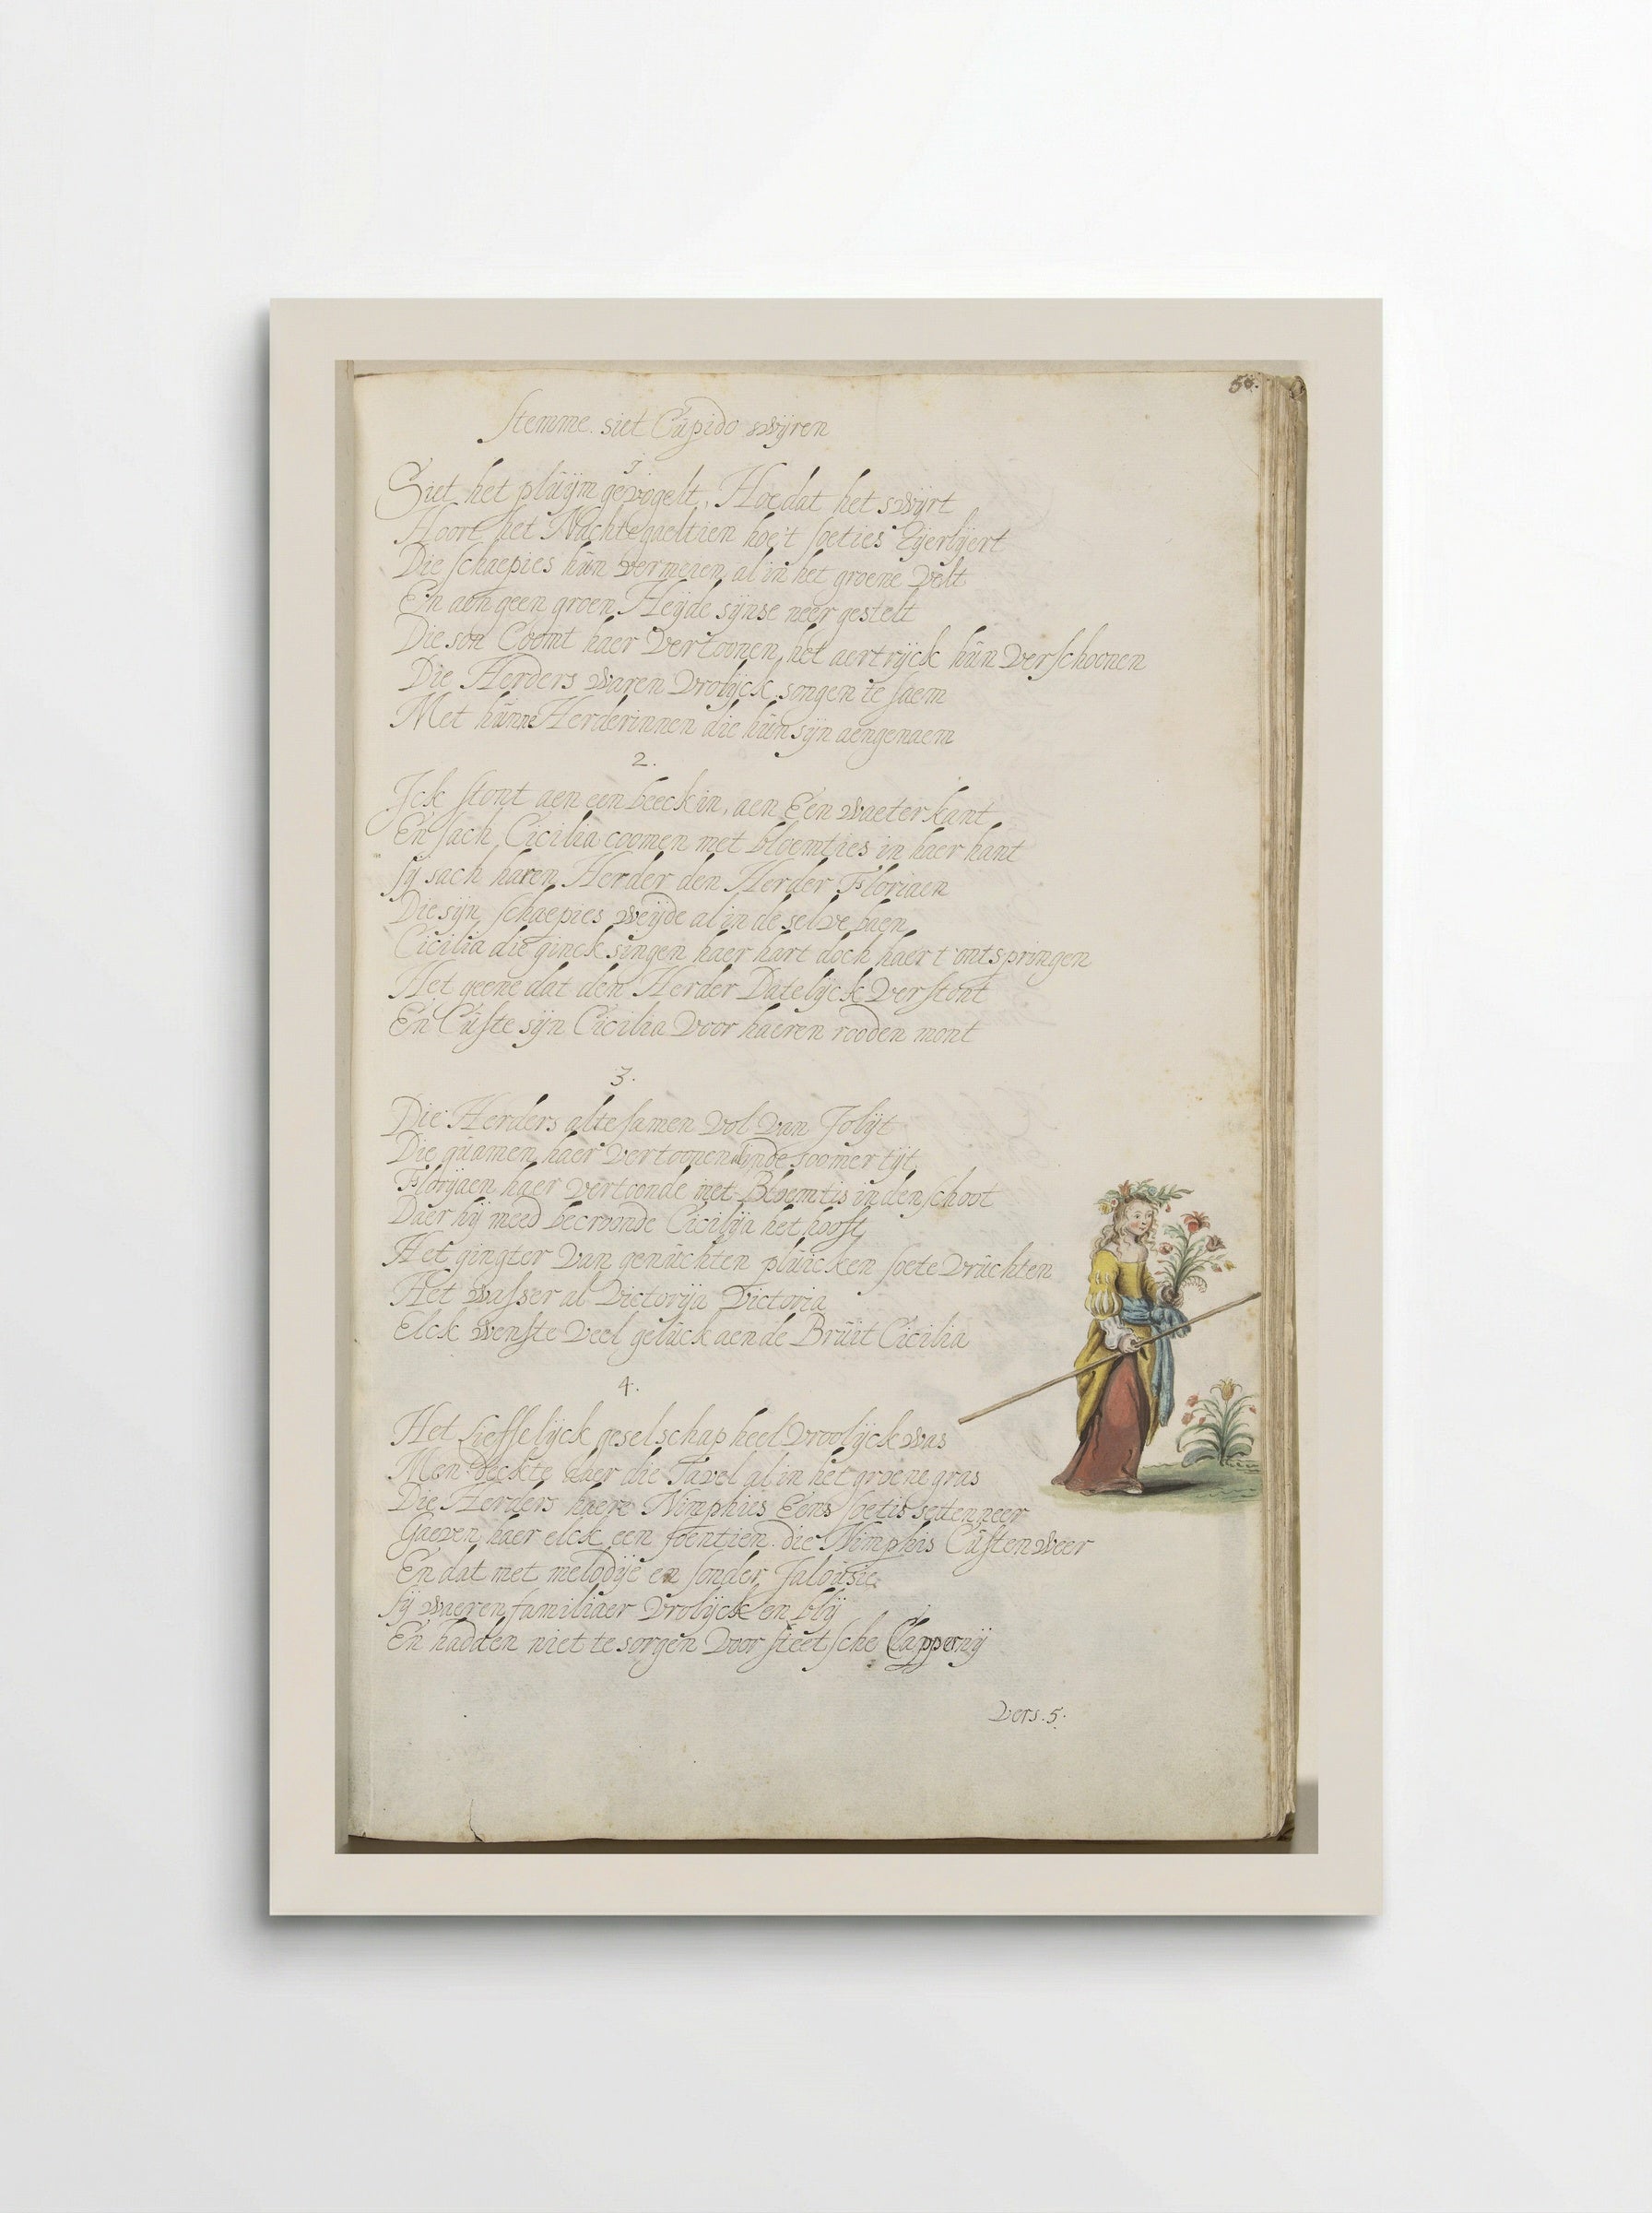 56.
Stemme. siet Cupido swijren
1
Siet het pluijm gevogelt, Hoe dat het swijrt
Hoort het Nachtegaeltien hoe't soeties Tijerlijert
Die schaepies hun vermeien, al in het groene velt
En aen geen groen Heijde sijnse neer gestelt
Die son Coomt haer vertoonen, het aertrijck hun verschoonen
Die Herders waren vrolijck, songen te saem
Met hunne Herderinnen die hun sijn aengenaem
2.
Ick stont aen een beeckin, aen Een waeter kant
En sach Cicilia coomen met bloemties in haer hant
sij sach haren Herder den Herder Floriaen
Die sijn schaepies weijde al in de selve baen
Cicilia die ginck singen haer hart doch haer t'ontspringen
Het geene dat den Herder Datelijck verstont
En Custe sijn Cicilia voor haeren rooden mont
3.
Die Herders altesamen vol van Jolijt
Die quamen haer vertoonen inde soomer tijt
Florijaen haer vertoonde met Bloemtis in den schoot
Daer hij meed becroonde Cicilija het hooft
Het gingter van genuchten pluicken soete vruchten
Het wasser al Victorija Victoria
Elck wenste veel geluck aen de Bruit Cicilia
4.
Het Lieffelijck geselschap heel vroolijck was
Men deckte daer die Tavel al in het groene gras
Die Herders haere Nimphies Eens soetis setten neer
Gaeven haer elck een soentien. die Nimphis Custen weer
En dat met melodije en sonder Jalousie
sij waeren familiaer vrolijck en blij
En hadden niet te sorgen voor steetsche Clappernij
Vers. 5.